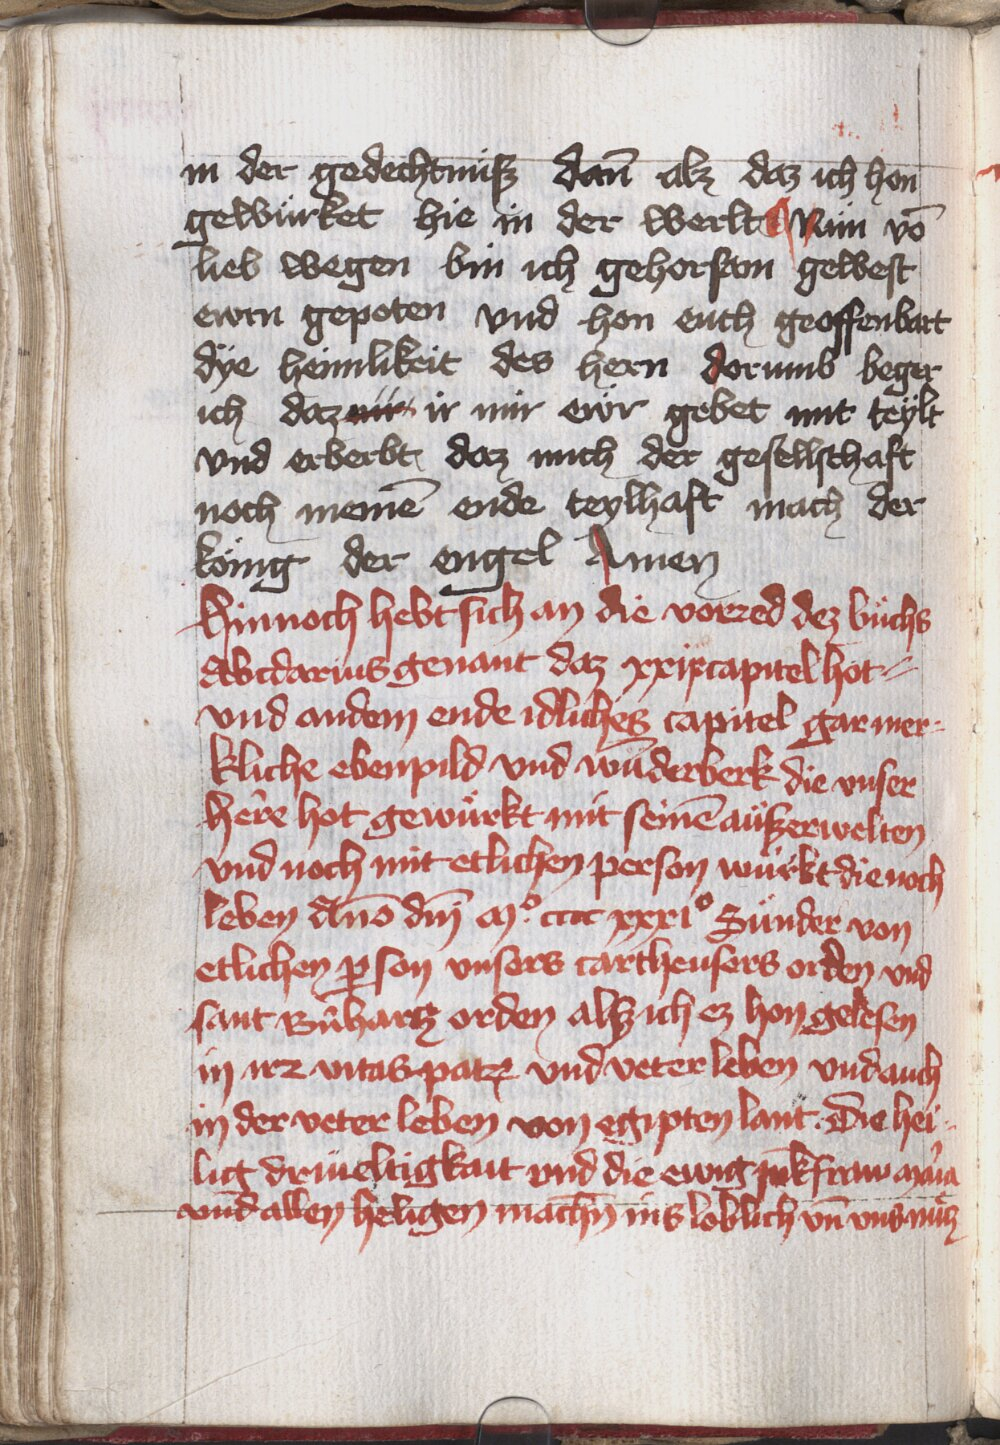 in der gedechtnüß dañ alz daz ich hon
gewürket hie in der werlt Nün vō
lieb wegen bin ich gehorsam gewest
ewrn gepoten vnd hon euch geoffenbart
dÿe heimlikeit des hern dorumb beger
ich daz mir ir mir ewr gebet mit teÿlt
vnd erberbt daz mich der gesellschaft
noch meinē ende teylhaft mach der
könig der engel Amen
Hinnoch hebt sich an die vorred dez büchs
Abcdarius genant daz xxiii capitel hot
vnd an dem ende idliches capitel gar mer-
kliche ebenpild vnd wunderberk die vnser
herre hot gewürkt mit seinē außerwelten
vnd noch mit etlichen person würkt die noch
leben Anō dm̄ Mº cccc xxxiº Sünder von
etlichen ꝑson vnsers cartheusers orden vnd
sant Bn̄hartz orden alß ich ez hon gelesen
in irz vitas patꝝ vnd veter leben vnd auch
in der veter leben von egipten lant. Die hei-
lig driueltigkait vnd die ewig junkfraw maria
vnd allen heligen machn̄ ins loblich vn̄ vns nütz